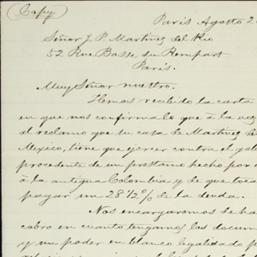 (Copy)
Paris Agosto 2
Señor J. P. Martinez del Rio
52 Rue Basse du Rempart
Paris.
Muy Señor nuestro.
Hemos recibido la carta
en que nos confirmale que á la vez
el reclamo que tu casa de Martinez de
Mexico, tiene que ejercer contra el
procedente de un prestamo hecho por
á la antigua Colombia y de que toca
pagar un 28 1/2 % de la deuda.
Nos encargaremos de ha
cobro en cuanto tengamos los docum
y un poder en blanco legalizado p